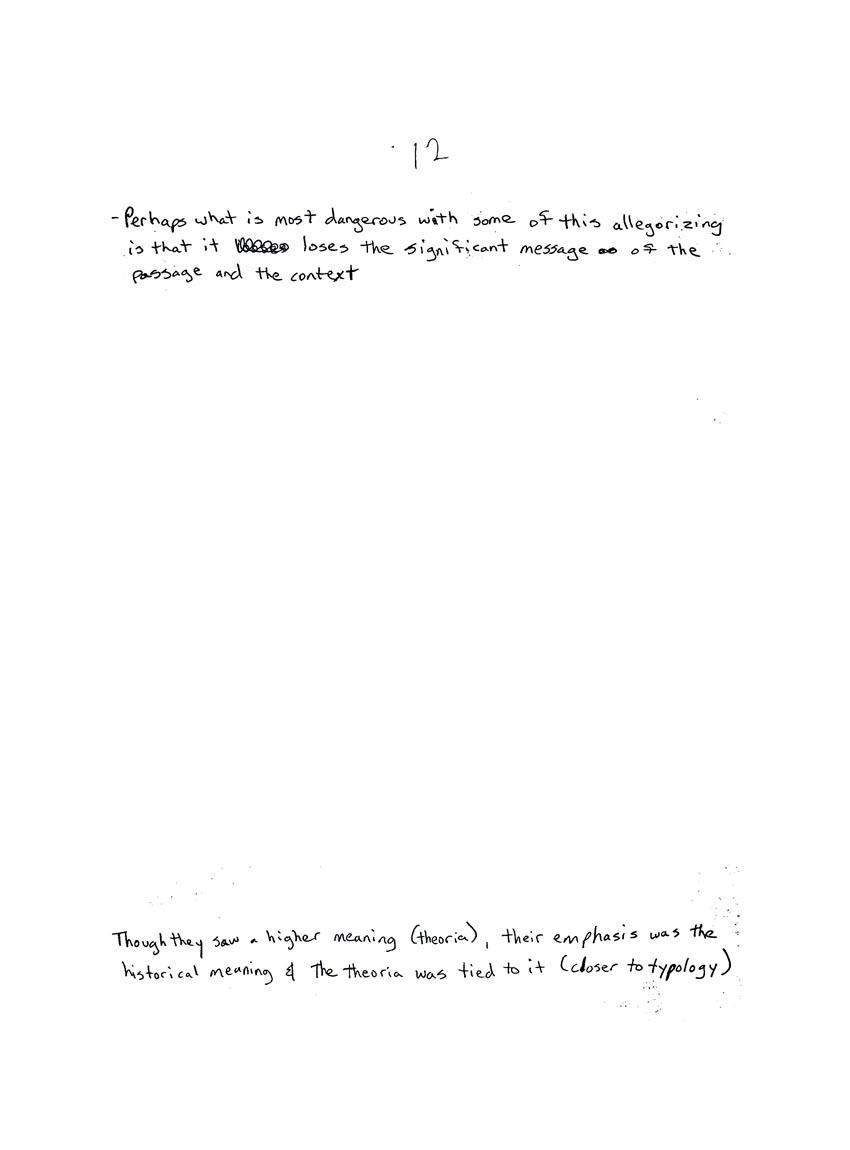 12
- Perhaps what is most dangerous with some of this allegorizing
is that it loses the significant message of the
passage and the context
Though they saw a higher meaning (theoria), their emphasis was the
historical meaning & The theoria was tied to it (closer to typology)